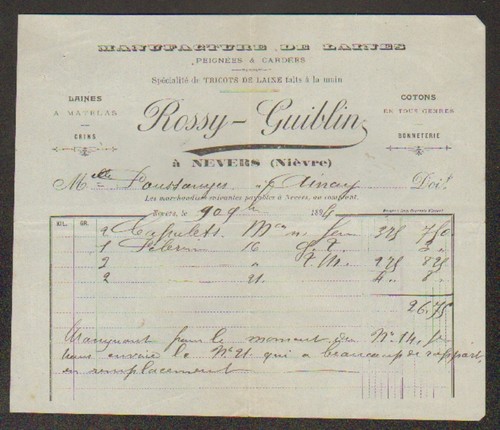 MANUFACTURE DE LAINES
PEIGNÉES & CARDÉES
Spécialité de TRICOTS DE LAINE faits à la main
LAINES
A MATELAS
CRINS
COTONS
EN TOUS GENRES
BONNETERIE
Rossy-Guiblin
à NEVERS (Nièvre)
Melle à Ainay Doit
Les marchandises suivantes payables à Nevers, au comptant.
Nevers, le 9 189
KIL. GR.
2 Capulets 375 750
1 Pélerin 16
3 " 275 825
2 21 4 " 8 "
26.75
Manquant pour le moment du No 14, je
vous envoie le No 21 qui a beaucoup de rapport
en remplacement